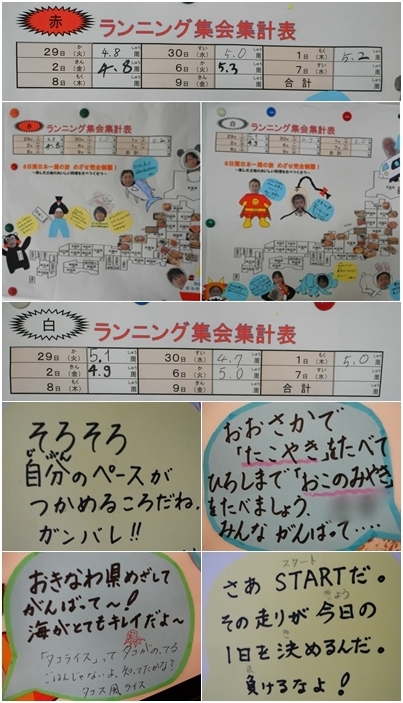 赤
ランニング集会集計表
29日(火) 4.8周 30日(水) 5.0周 1日(木) 5.2周
2日(金) 4.8周 6日(火) 5.3周 7日(水) 周
8日(木) 周 9日(金) 周 合計 周
赤 ランニング集会集計表
8日間日本一周の旅 めざせ完全制覇!
白 ランニング集会集計表
8日間日本一周の旅 めざせ完全制覇!
白
ランニング集会集計表
29日(火) 5.1周 30日(水) 4.7周 1日(木) 5.0周
2日(金) 4.9周 6日(火) 5.0周 7日(水) 周
8日(木) 周 9日(金) 周 合計 周
そろそろ
自分のペースが
つかめるころだね。
ガンバレ!!
おおさかで
「たこやき」をたべて
ひろしまで「おこのみやき」
をたべましょう。
みんな がんばって····
おきなわ県めざして
がんばって〜!
海がとてもキレイだよ〜
「タコライス」って タコがのってる
ごはんじゃないよ。知ってたかな?
タコス風ライス
さあ STARTだ。
その走りが今日の
1日を決めるんだ。
負けるなよ!